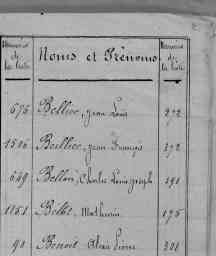 Numéros de la liste | Noms et Prénoms | Numéros de la liste
675 Bellier, Jean Louis 272
1506 Beillier, Jean François 172
649 Bellon, Charles Louis Joseph 190
1851 Mathurin 175
90 Benoit 301